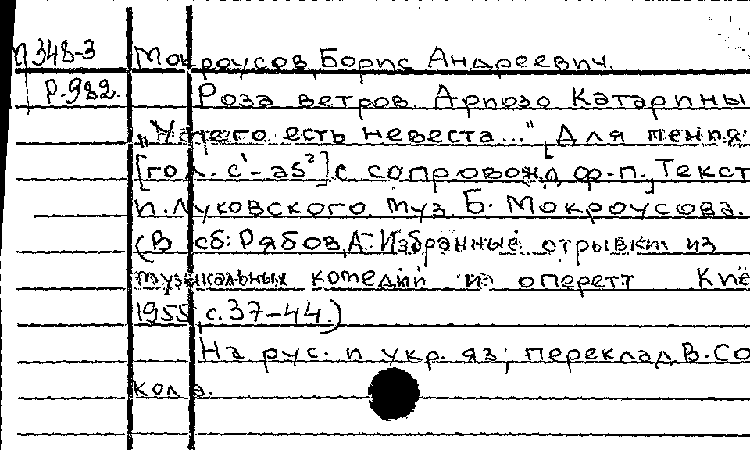 П348-3 Мокроусов, Борис Андреевич.
Р.982. Роза ветров. Ариозо Катарины
„У него есть невеста..." Для пения
[гол. c¹-as²] с сопровожд. ф-п. Текст
И. Луковского, муз. Б. Мокроусова.
(В сб: Рябов, А. Избранные отрывки из
музыкальных комедий и оперетт
1955, с.37-44.)
На рус. и укр. яз; переклад В. Со
кола.